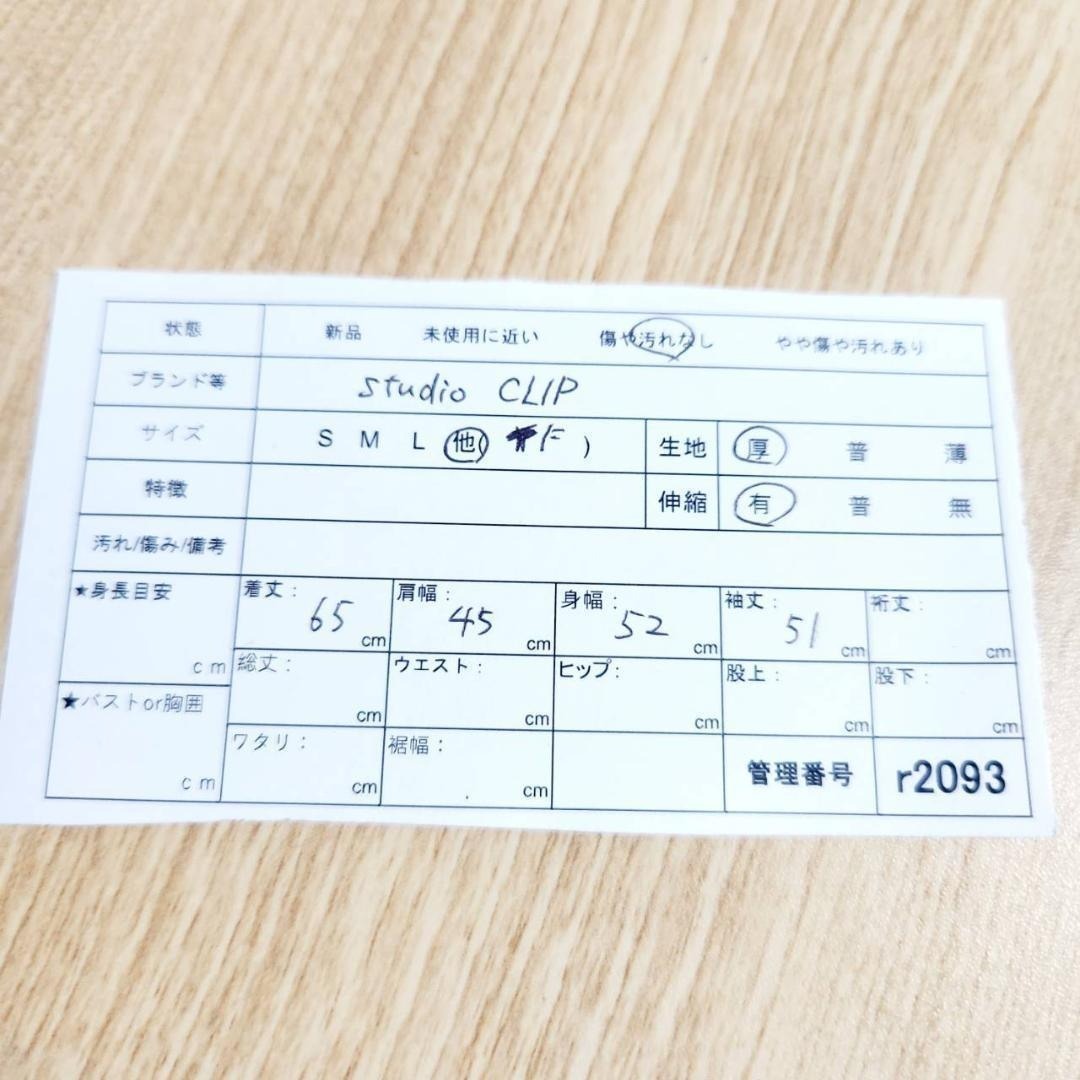 状態 新品 未使用に近い 傷や汚れなし やや傷や汚れあり
ブランド等 studio CLIP
サイズ S M L 他( F ) 生地 厚 普 薄
特徴 伸縮 有 普 無
汚れ/傷み/備考
★身長目安 cm 着丈: 65 cm 肩幅: 45 cm 身幅: 52 cm 袖丈: 51 cm 裄丈: cm
総丈: cm ウエスト: cm ヒップ: cm 股上: cm 股下: cm
★バストor胸囲 cm ワタリ: cm 裾幅: cm 管理番号 r2093